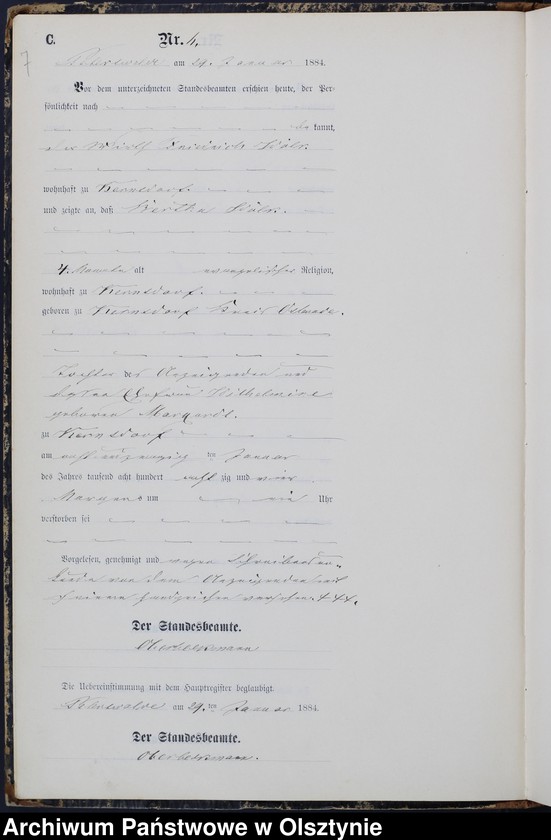 C.
Nr. 4.
7
am 29. Januar 1884.
Vor dem unterzeichneten Standesbeamten erschien heute, der Per-
sönlichkeit nach
kannt,
der Wirth Friedrich
wohnhaft zu Kernsdorf.
und zeigte an, daß Bertha
4. Monate alt evangelischer Religion,
wohnhaft zu Kernsdorf.
geboren zu Kernsdorf Kreis Osterode.
Tochter des Anzeigenden und
Ehefrau Wilhelmine
geboren
zu Kernsdorf
am acht und zwanzig ten Januar
des Jahres tausend acht hundert acht zig und vier
Morgens um Uhr
verstorben sei
Vorgelesen, genehmigt und wegen Schreibensun-
kunde von dem Anzeigenden mit
seinem Handzeichen versehen. +++.
Der Standesbeamte.
Die Uebereinstimmung mit dem Hauptregister beglaubigt.
am 29. ten Januar 1884.
Der Standesbeamte.
Archiwum Państwowe w Olsztynie